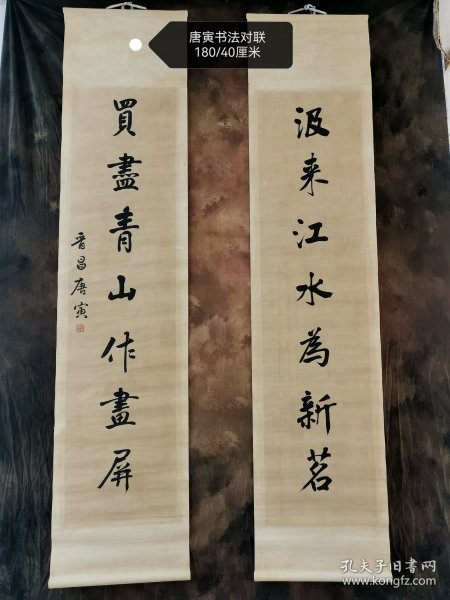 唐寅书法对联
180/40厘米
汲来江水為新茗
買盡青山作畫屏
晋昌唐寅
孔夫子旧书网
www.kongfz.com